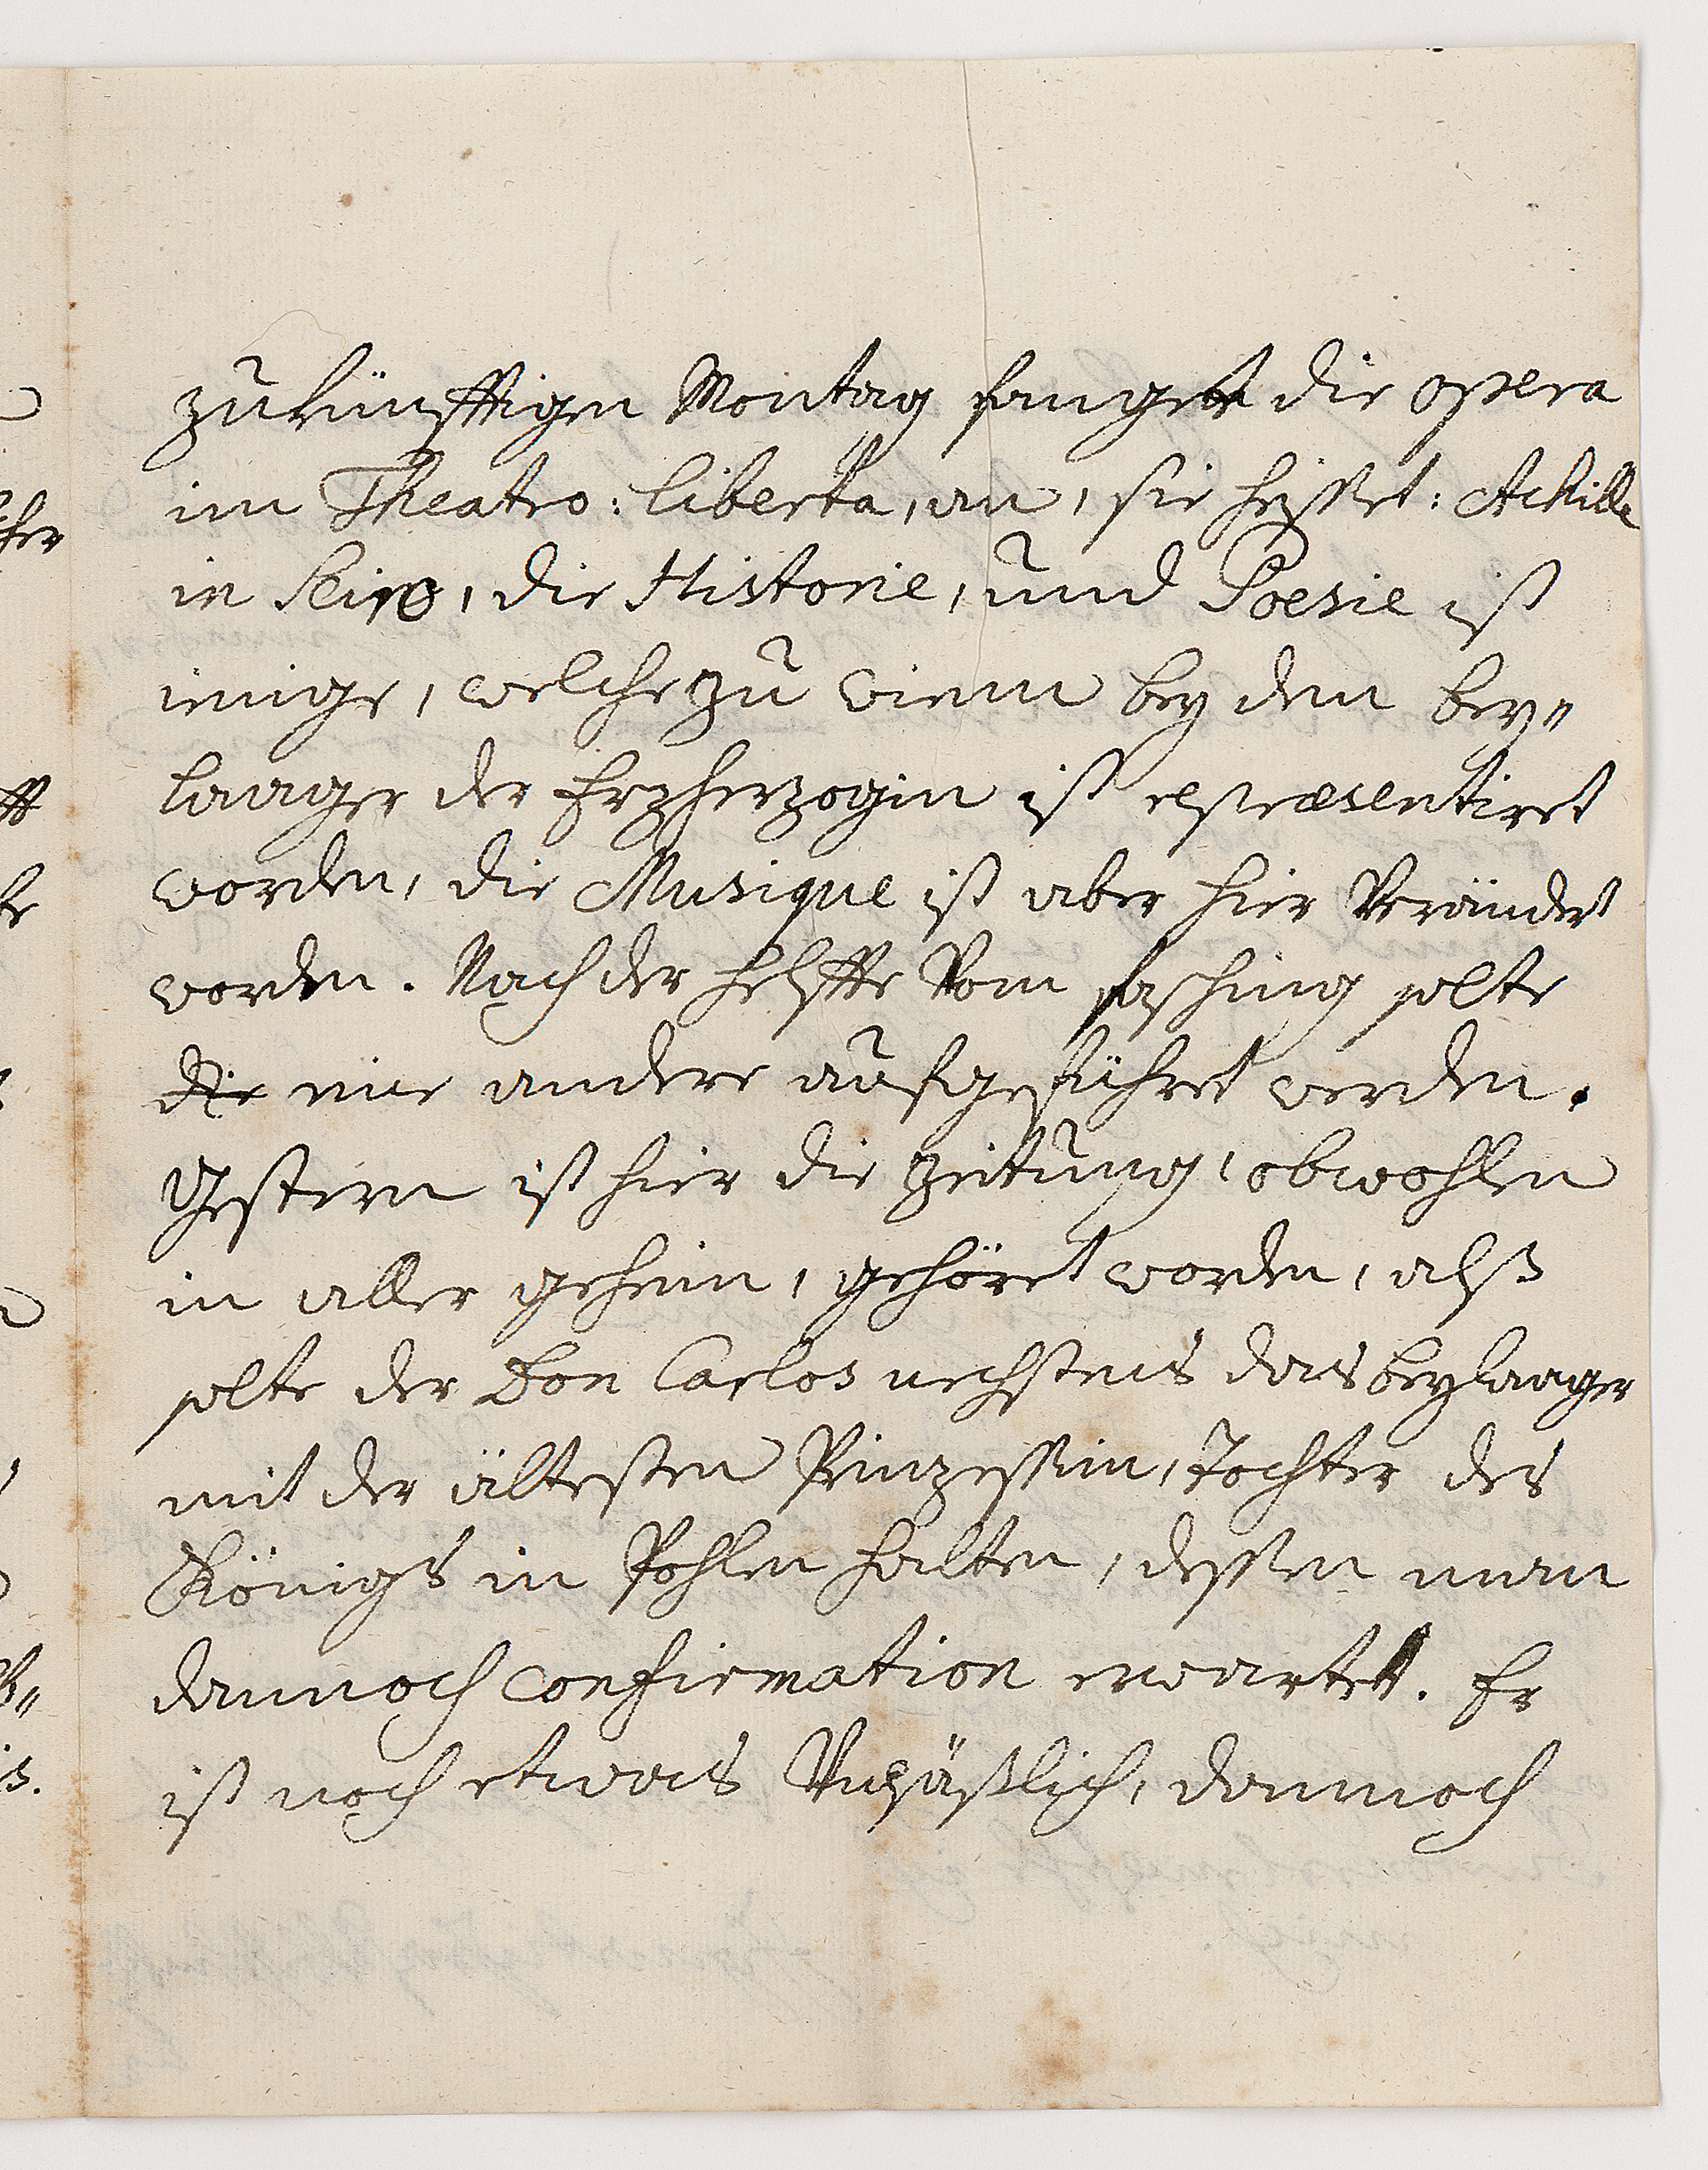 zukünfftigen Montag fanget die opera
im Theatro: liberta, an, sie heisset: Achille
in Sciro, die Historie, und Poesie ist
ienige, welche zu wienn bey den bey„
laager der Erzherzogin ist repræsentiret
worden, die Musique ist aber hier Verändert
worden. Nach der helffte Vom fasching solte
die eine andere aufgeführet werden.
Gestern ist hier die Zeitung, obwohlen
in aller geheim, gehöret worden, alß
solte der Don Carlos nechstens das beylaager
mit der ältesten Prinzessin, Tochter des
Königs in Pohlen halten, dessen man
dannoch confirmation erwartet. Er
ist noch etwas Unpäßlich, dannoch